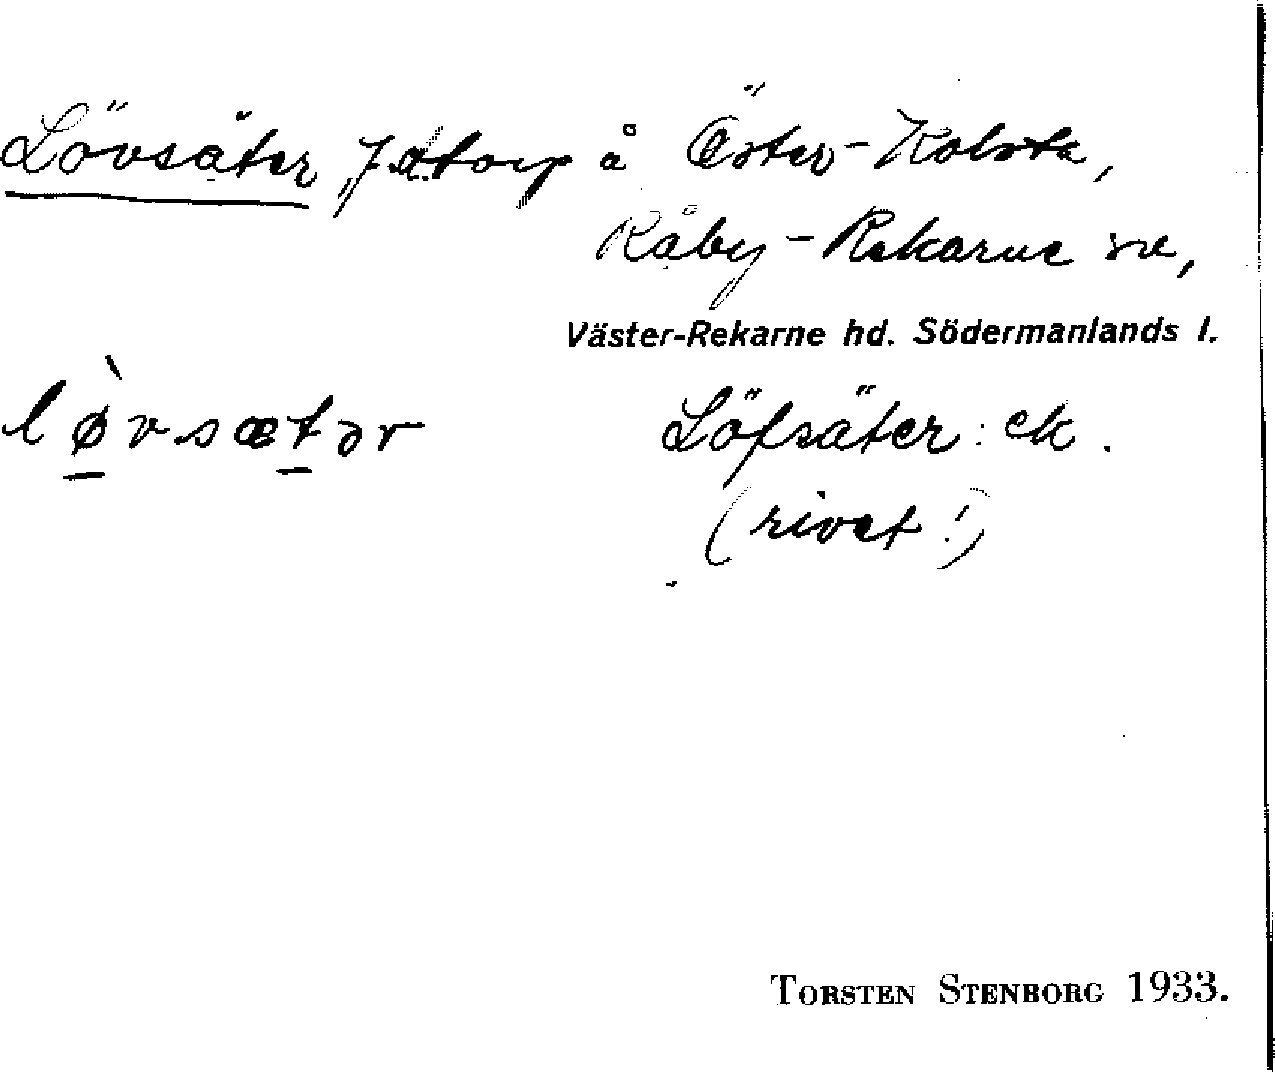 Lövsäter, torp å Öster-Kolsta,
Råby-Rekarne sn,
Väster-Rekarne hd. Södermanlands l.
lø̱̀vsæṯər
Löfsäter: ek.
(rivet!)
TORSTEN STENBORG 1933.